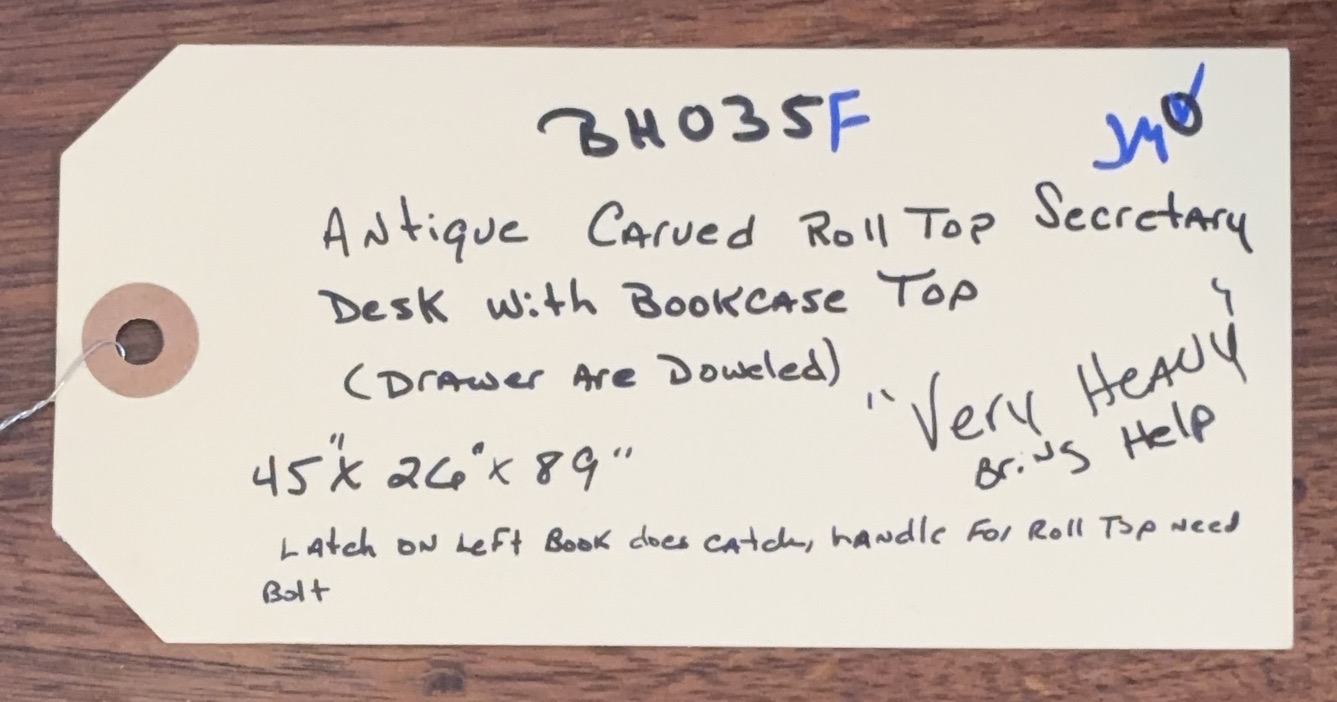 BH035F
Antique Carved Roll Top Secretary
Desk with Bookcase Top
(Drawer Are Doweled)
"Very Heavy"
Bring Help
45" x 26" x 89"
Latch on Left Book does catch, handle For Roll Top Need
Bolt